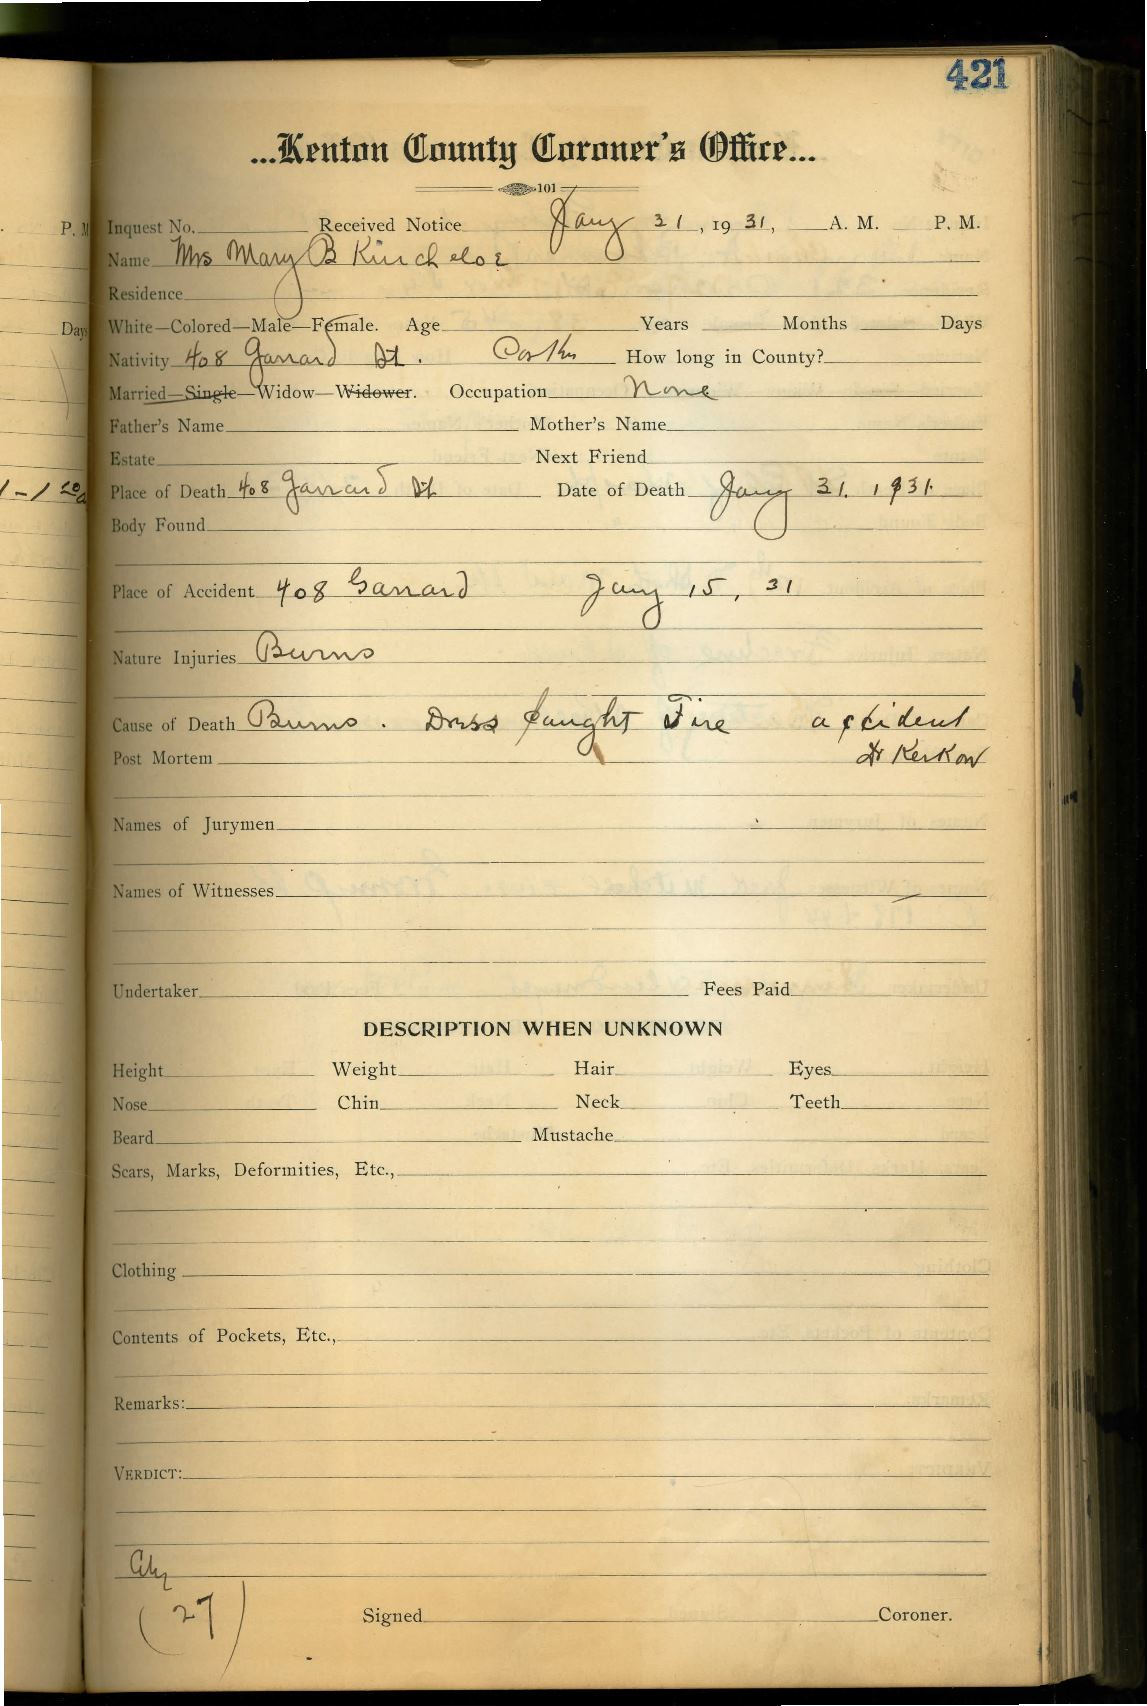 421
...Kenton County Coroner's Office...
101
P. M Inquest No. Received Notice Jany 31, 1931, A. M. P. M.
Name Mrs Mary B Kincheloe
Residence
Days White—Colored—Male—Female. Age Years Months Days
Nativity 408 Garrard St. How long in County?
Married—Single—Widow—Widower. Occupation None
Father's Name Mother's Name
Estate Next Friend
Place of Death 408 Garrard St Date of Death Jany 31. 1931.
Body Found
Place of Accident 408 Garrard Jany 15, 31
Nature Injuries Burns
Cause of Death Burns. Dress Caught Fire accident
Post Mortem Dr Kerkow
Names of Jurymen
Names of Witnesses
Undertaker Fees Paid
DESCRIPTION WHEN UNKNOWN
Height Weight Hair Eyes
Nose Chin Neck Teeth
Beard Mustache
Scars, Marks, Deformities, Etc.,
Clothing
Contents of Pockets, Etc.,
Remarks:
VERDICT:
City
(27)
Signed Coroner.